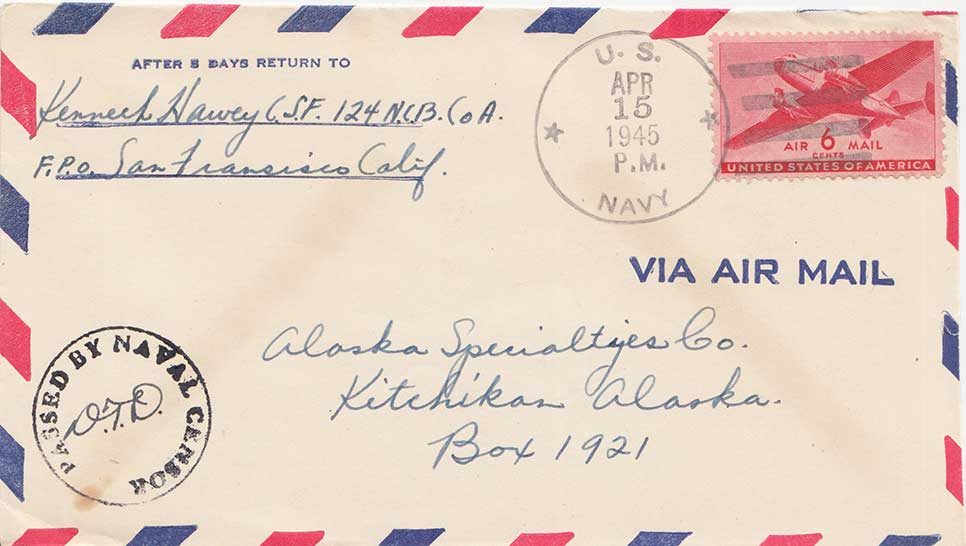 AFTER 5 DAYS RETURN TO
Kenneth Hawey C.S.F. 124 N.C.B. Co A.
F.P.O. San Fransisco Calif.
U. S.
APR
15
1945
P.M.
NAVY
AIR 6 MAIL
CENTS
UNITED STATES OF AMERICA
VIA AIR MAIL
Alaska Specialtyes Co.
Kitchikan Alaska.
Box 1921
PASSED BY NAVAL CENSOR
D.T.D.